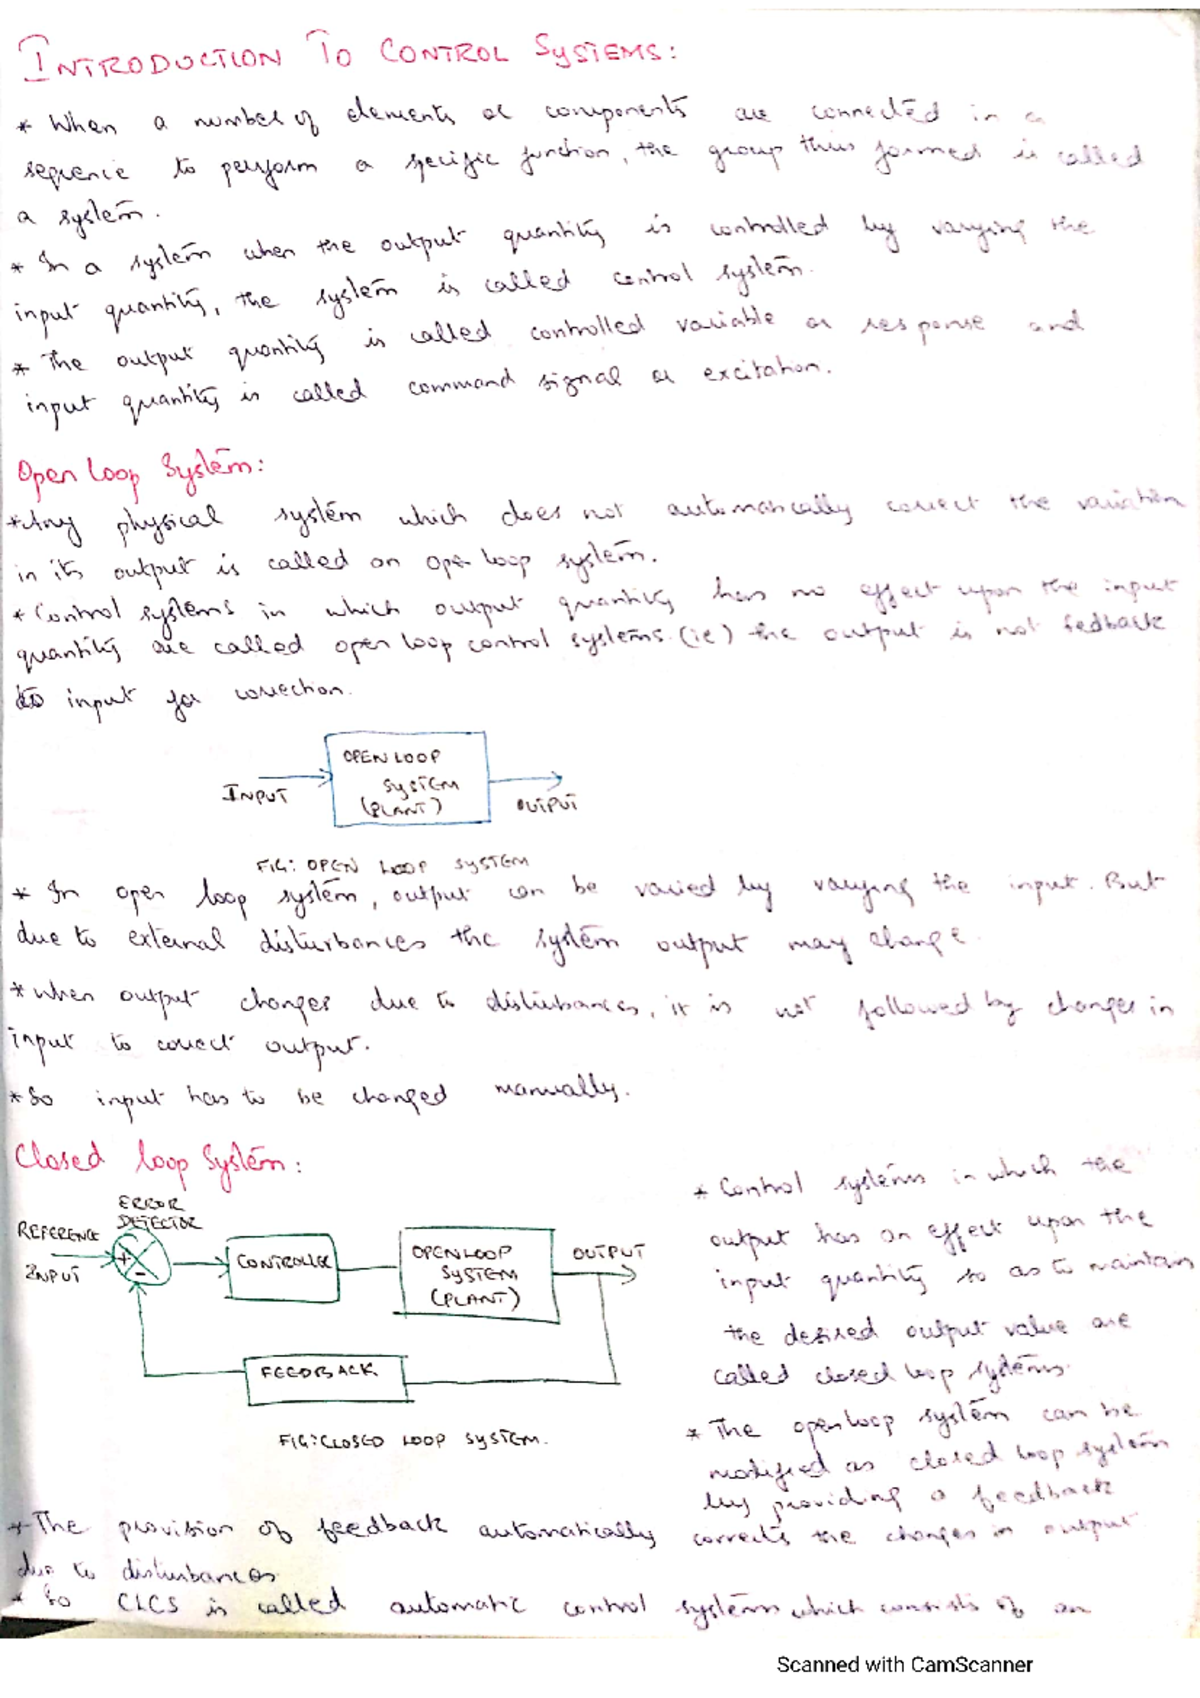 INTRODUCTION TO CONTROL SYSTEMS:
* When a number of elements or components are connected in a
sequence to perform a specific function, the group thus formed is called
a system.
* In a system when the output quantity is controlled by varying the
input quantity, the system is called control system.
* The output quantity is called controlled variable or response and
input quantity is called command signal or excitation.
Open Loop System:
* Any physical system which does not automatically correct the variation
in its output is called an open loop system.
* Control systems in which output quantity has no effect upon the input
quantity are called open loop control systems. (ie) the output is not fedback
to input for correction.
INPUT
OPEN LOOP
SYSTEM
(PLANT)
OUTPUT
FIG: OPEN LOOP SYSTEM
* In open loop system, output can be varied by varying the input. But
due to external disturbances the system output may change.
* When output changes due to disturbances, it is not followed by changes in
input to correct output.
* So input has to be changed manually.
Closed loop System:
ERROR
DETECTOR
REFERENCE
INPUT
+
-
CONTROLLER
OPENLOOP
SYSTEM
(PLANT)
OUTPUT
FEEDBACK
FIG: CLOSED LOOP SYSTEM.
* Control systems in which the
output has an effect upon the
input quantity so as to maintain
the desired output value are
called closed loop systems.
* The openloop system can be
modified as closed loop system
by providing a feedback
* The provision of feedback automatically corrects the changes in output
due to disturbances
* So CLCS is called automatic control system which consists of an
Scanned with CamScanner